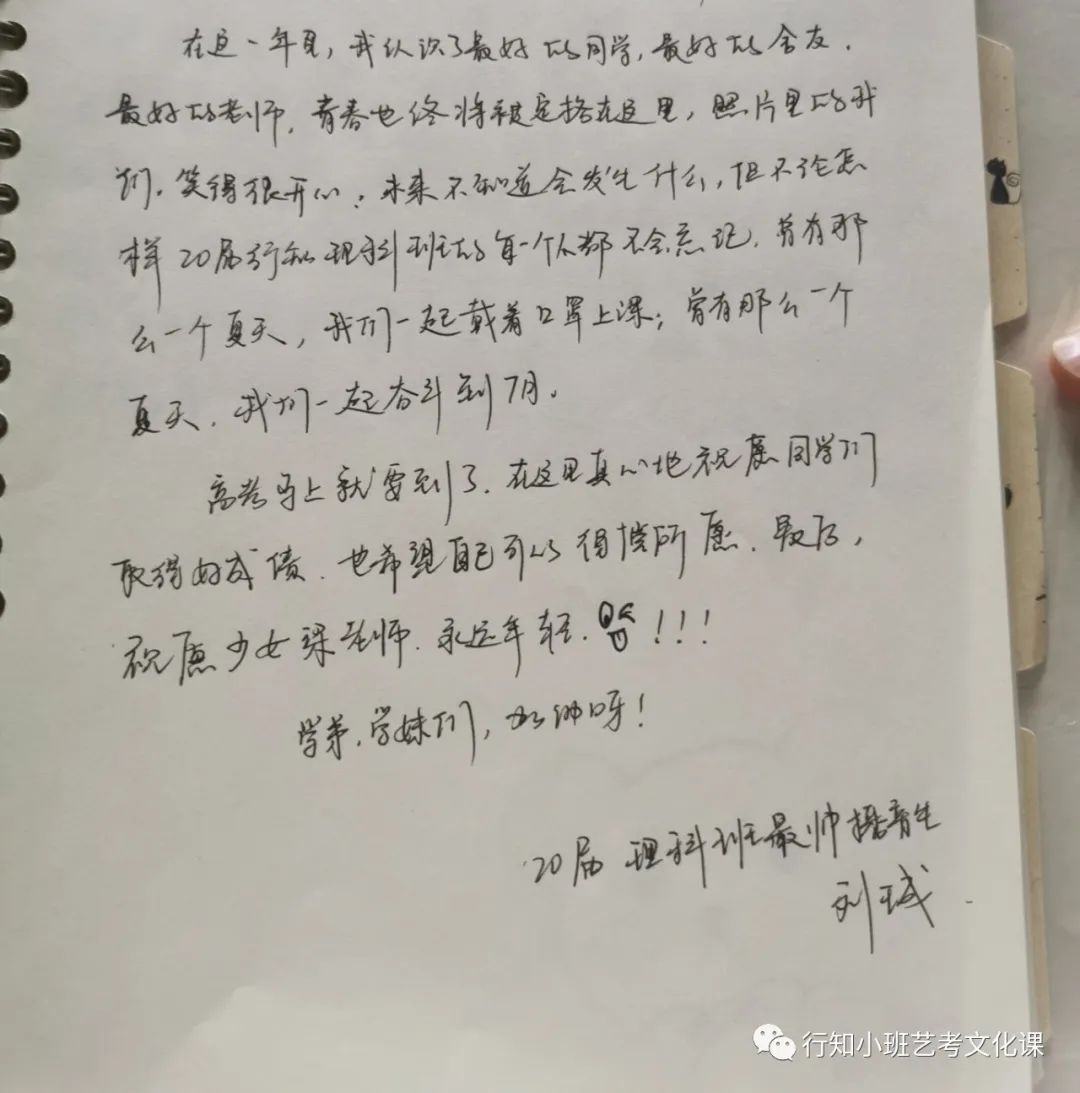 在这一年里，我认识了最好的同学，最好的舍友．
最好的老师．青春也终将被定格在这里，照片里的我
们．笑得很开心．未来不知道会发生什么，但不论怎
样20届行知理科班的每一个人都不会忘记．曾有那
么一个夏天，我们一起戴着口罩上课；曾有那么一个
夏天．我们一起奋斗到7月．
高考马上就要到了．在这里真心地祝愿同学们
取得好成绩．也希望自己可以得偿所愿．最后，
祝愿少女梁老师．永远年轻．！！！
学弟．学妹们，加油呀！
20届 理科班最帅播音生
刘
行知小班艺考文化课